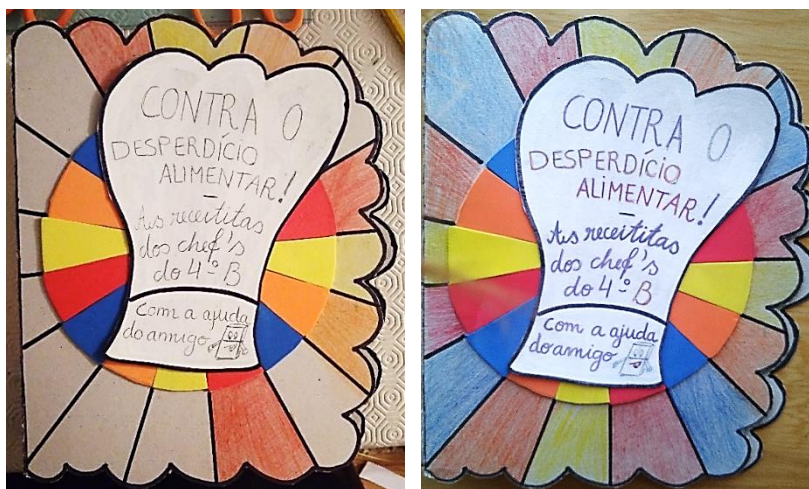 CONTRA O
DESPERDÍCIO
ALIMENTAR!
As receititas
dos chef's
do 4º B
Com a ajuda
do amigo
CONTRA O
DESPERDÍCIO
ALIMENTAR!
As receititas
dos chef's
do 4º B
Com a ajuda
do amigo